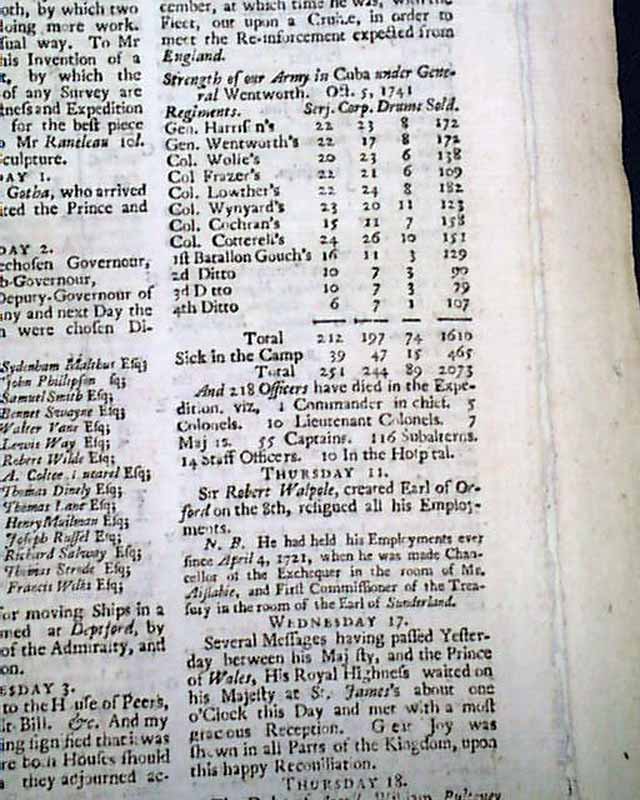 oth, by which two
doing more work.
sual way. To Mr
his Invention of a
t, by which the
of any Survey are
tness and Expedition
for the best piece
o Mr Ranelau 10l.
sculpture.
DAY 1.
Gotha, who arrived
ited the Prince and
DAY 2.
echosen Governour,
b-Governour,
Deputy-Governour of
any and next Day the
n were chosen Di-
Sydenham Malthus Esq;
John Phillipson sq;
Samuel Smith Esq;
Bennet Swayne Esq;
Walter Vane Esq;
Lewis Way Esq;
Robert Wilde Esq;
A. Coltee
Thomas Dinely Esq;
Thomas Lane Esq;
Henry Muilman Esq;
Joseph Russel Esq;
Richard Salway Esq;
Thomas Strode Esq;
Francis Wilks Esq;
for moving Ships in a
med at Deptford, by
of the Admiralty, and
on.
ESDAY 3.
to the H use of Peers,
it-Bill. &c. And my
ing sign fied that it was
re both Houses should
a they adjourned ac-
cember, at which time he was, with the
Fleet, out upon a Cruize, in order to
meet the Re-inforcement expected from
England.
Strength of our Army in Cuba under Gene-
ral Wentworth. Oct. 5, 1741
Regiments. Serj. Corp. Drums Sold.
Gen. Harris n's 22 23 8 172
Gen. Wentworth's 22 17 8 172
Col. Wolfe's 20 23 6 138
Col Frazer's 22 21 6 109
Col. Lowther's 22 24 8 182
Col. Wynyard's 23 20 11 123
Col. Cochran's 15 11 7 158
Col. Cotterell's 24 26 10 151
1st Batallon Gouch's 16 11 3 129
2d Ditto 10 7 3 90
3d D tto 10 7 3 79
4th Ditto 6 7 1 107
Total 212 197 74 1610
Sick in the Camp 39 47 15 465
Total 251 244 89 2073
And 218 Officers have died in the Expe-
dition. viz. 1 Commander in chief. 5
Colonels. 10 Lieutenant Colonels. 7
Maj 12. 55 Captains. 116 Subalterns.
14 Staff Officers. 10 In the Hosp tal.
THURSDAY 11.
Sir Robert Walpole, created Earl of Or-
ford on the 8th, resigued all his Employ-
ments.
N. B. He had held his Employments ever
since April 4, 1721, when he was made Chan-
cellor of the Exchequer in the room of Mr.
Aislabie, and First Commissioner of the Trea-
sury in the room of the Earl of Sunderland.
WEDNESDAY 17.
Several Messages having passed Yester-
day between his Maj sty, and the Prince
of Wales, His Royal Highness waited on
his Majesty at St. James's about one
o'Clock this Day and met with a most
gracious Reception. G eat Joy was
shewn in all Parts of the Kingdom, upon
this happy Reconciliation.
THURSDAY 18.
William Pulteney